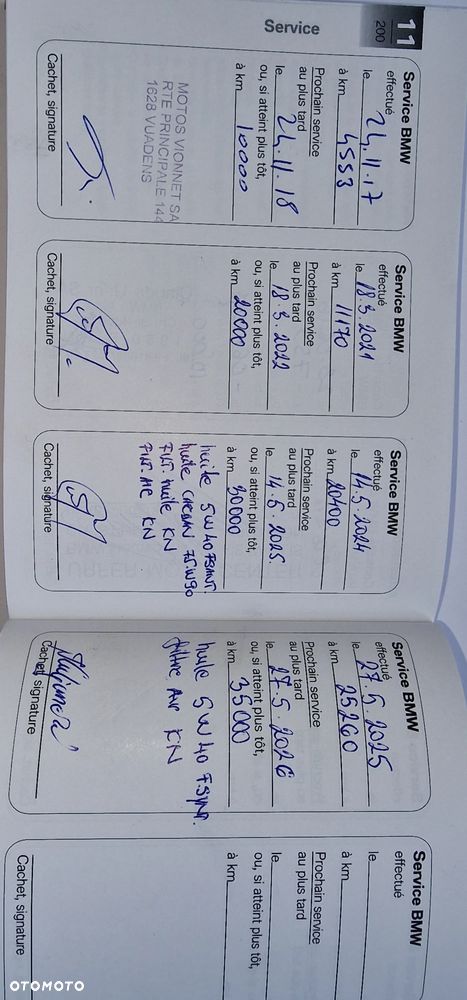 Service
11
200
Service BMW
effectué
le 24.11.17
à km 4553
Prochain service
au plus tard
le 24.11.18
ou, si atteint plus tôt,
à km 10000
MOTOS VIONNET SA
RTE PRINCIPALE 144
1628 VUADENS
Cachet, signature
Service BMW
effectué
le 18.3.2021
à km 11170
Prochain service
au plus tard
le 18.3.2022
ou, si atteint plus tôt,
à km 20000
Cachet, signature
Service BMW
effectué
le 14.5.2024
à km 20100
Prochain service
au plus tard
le 14.5.2025
ou, si atteint plus tôt,
à km 30000
huile 5W40
huile 75W90
huile KN
KN
Cachet, signature
Service BMW
effectué
le 27.5.2025
à km 25260
Prochain service
au plus tard
le 27.5.2026
ou, si atteint plus tôt,
à km 35000
huile 5W40
filtre KN
Cachet, signature
Service BMW
effectué
le
à km
Prochain service
au plus tard
le
ou, si atteint plus tôt,
à km
Cachet, signature
OTOMOTO